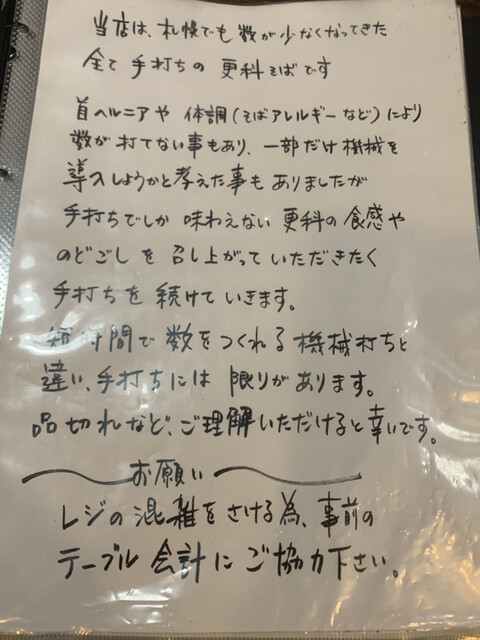 当店は、札幌でも数が少なくなってきた
全て手打ちの更科そばです
首ヘルニアや体調(そばアレルギーなど)により
数が打てない事もあり、一部だけ機械を
導入しようかと考えた事もありましたが
手打ちでしか味わえない更科の食感や
のどごしを召し上がっていただきたく
手打ちを続けていきます。
短時間で数をつくれる機械打ちと
違い、手打ちには限りがあります。
品切れなど、ご理解いただけると幸いです。
お願い
レジの混雑をさける為、事前の
テーブル会計にご協力下さい。